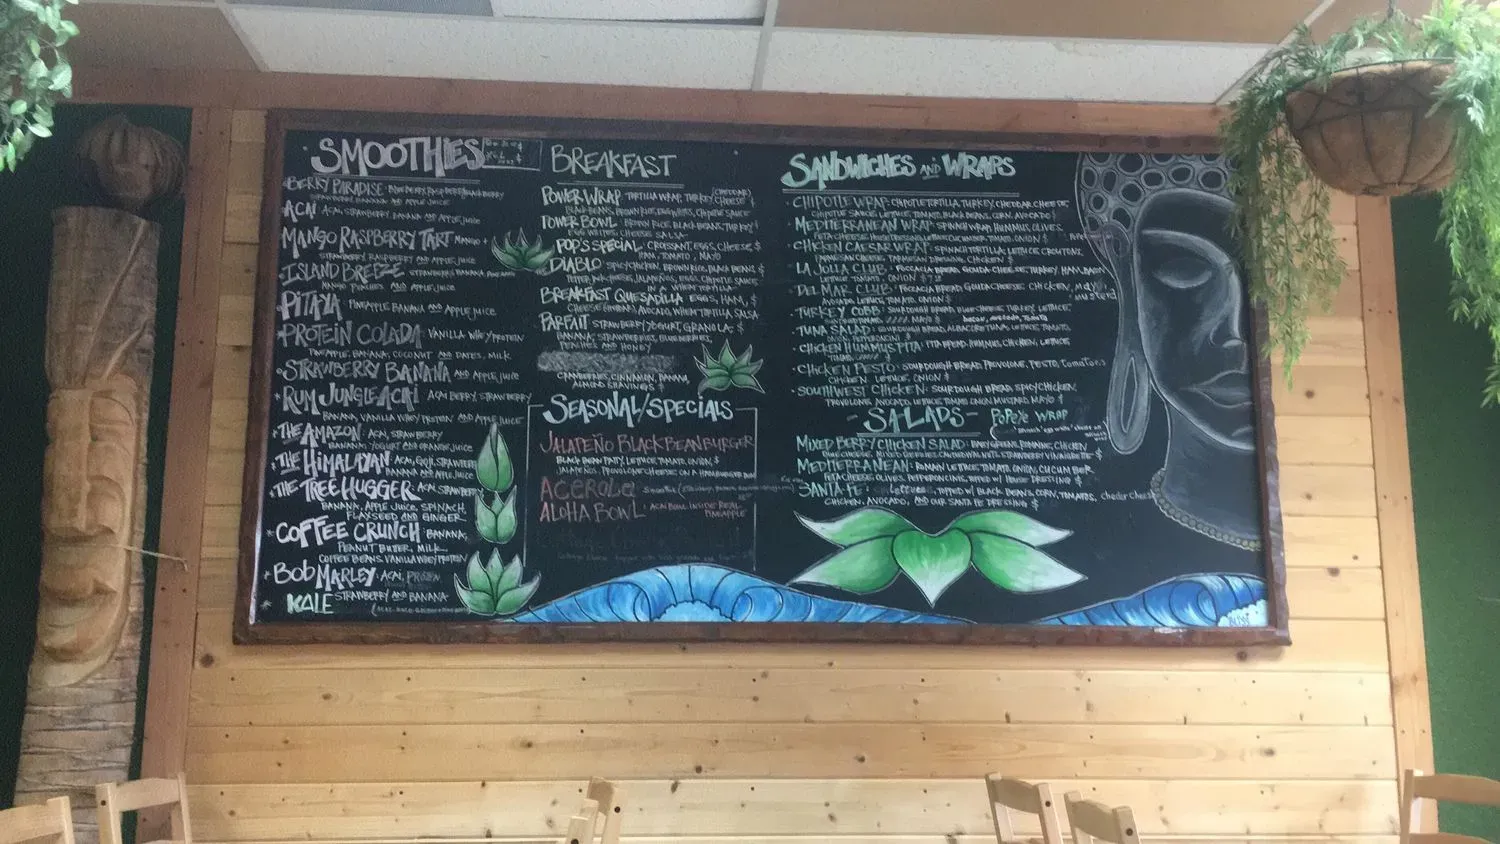 SMOOTHIES
BERRY PARADISE - BLUEBERRY, RASPBERRY, BLACKBERRY
STRAWBERRY, BANANA AND APPLE JUICE
ACAI ACAI, STRAWBERRY, BANANA AND APPLE JUICE
MANGO RASPBERRY TART MANGO +
STRAWBERRY, RASPBERRY AND APPLE JUICE
ISLAND BREEZE STRAWBERRY, BANANA,
MANGO, PEACHES AND APPLE JUICE
PITAYA PINEAPPLE BANANA AND APPLE JUICE
PROTEIN COLADA VANILLA WHEY PROTEIN
PINEAPPLE, BANANA, COCONUT AND DATES, MILK
STRAWBERRY BANANA AND APPLE JUICE
RUM JUNGLE ACAI ACAI BERRY, STRAWBERRY
BANANA, VANILLA WHEY PROTEIN AND APPLE JUICE
THE AMAZON: ACAI, STRAWBERRY
BANANA, YOGURT AND ORANGE JUICE
THE HIMALAYAN: ACAI, GOJI, STRAWBERRY
BANANA AND APPLE JUICE
THE TREE HUGGER ACAI, STRAWBERRY
BANANA, APPLE JUICE, SPINACH,
FLAXSEED AND GINGER
COFFEE CRUNCH BANANA,
PEANUT BUTTER, MILK
COFFEE BEANS, VANILLA WHEY PROTEIN
BOB MARLEY ACAI, FROZEN
STRAWBERRY AND BANANA
KALE
BREAKFAST
POWER WRAP TORTILLA WRAP, TURKEY, (CHEDDAR) CHEESE
BLACK BEANS, BROWN RICE, EGG WHITES, CHIPOTLE SAUCE
POWER BOWL BROWN RICE, BLACK BEANS, TURKEY
EGG WHITES, CHEESE, SALSA
POP'S SPECIAL: CROISSANT, EGGS, CHEESE, $
HAM, TOMATO, MAYO
DIABLO SPICY CHICKEN, BROWN RICE, BLACK BEANS $
PEPPER JACK CHEESE, JALAPEÑOS, EGGS, CHIPOTLE SAUCE
IN A WHEAT TORTILLA
BREAKFAST QUESADILLA EGGS, HAM, $
AVOCADO, WHEAT TORTILLA, SALSA
PARFAIT STRAWBERRY YOGURT, GRANOLA, $
BANANA, STRAWBERRIES, BLUEBERRIES,
PEACHES AND HONEY
CRANBERRIES, CINNAMON, BANANA
ALMOND SHAVINGS $
SEASONAL/SPECIALS
JALAPEÑO BLACK BEAN BURGER
BLACK BEAN PATTY, LETTUCE, TOMATO, ONION, $
JALAPENOS, PROVOLONE CHEESE ON A HAMBURGER BUN
ACEROLA SMOOTHIE
ALOHA BOWL ACAI BOWL INSIDE REAL
PINEAPPLE
SANDWICHES AND WRAPS
CHIPOTLE WRAP: CHIPOTLE TORTILLA, TURKEY, CHEDDAR CHEESE,
CHIPOTLE SAUCE, LETTUCE, TOMATO, BLACK BEANS, CORN, AVOCADO $
MEDITERRANEAN WRAP SPINACH WRAP, HUMMUS, OLIVES,
FETA CHEESE, HOUSE DRESSING, LETTUCE, CUCUMBER, TOMATO, ONION $
CHICKEN CAESAR WRAP SPINACH TORTILLA, LETTUCE, CROUTONS,
PARMESAN CHEESE, PARMESAN DRESSING, CHICKEN $
LA JOLLA CLUB FOCCACIA BREAD, GOUDA CHEESE, TURKEY, HAM, BACON
LETTUCE, TOMATO, ONION $
DEL MAR CLUB FOCCACIA BREAD, GOUDA CHEESE, CHICKEN, mayo, mustard
AVOCADO, LETTUCE, TOMATO, ONION $
TURKEY COBB: SOURDOUGH BREAD, BLUE CHEESE, TURKEY, LETTUCE,
bacon, avocado, tomato
MAYO $
TUNA SALAD SOURDOUGH BREAD, ALBACORE TUNA, LETTUCE, TOMATO,
ONION, PEPPERONCINI $
CHICKEN HUMMUS PITA PITA BREAD, HUMMUS, CHICKEN, LETTUCE
CHICKEN PESTO SOURDOUGH BREAD, PROVOLONE, PESTO, Tomatoes
CHICKEN, LETTUCE, ONION $
SOUTHWEST CHICKEN: SOURDOUGH BREAD, SPICY CHICKEN,
PROVOLONE, AVOCADO, LETTUCE, TOMATO, ONION, MUSTARD, MAYO $
- SALADS -
POPEYE WRAP
MIXED BERRY CHICKEN SALAD: BABY GREENS, ROMAINE, CHICKEN,
BLUE CHEESE, MIXED BERRIES, CANDIED WALNUTS, STRAWBERRY VINAIGRETTE $
MEDITERRANEAN: ROMAIN LETTUCE, TOMATO, ONION, CUCUMBER
FETA CHEESE, OLIVES, PEPPERONCINI, TOPPED W/ HOUSE DRESSING $
SANTA FE: lettuce, TOPPED W/ BLACK BEANS, CORN, TOMATOES, cheddar cheese
CHICKEN, AVOCADO, AND OUR SANTA FE DRESSING $